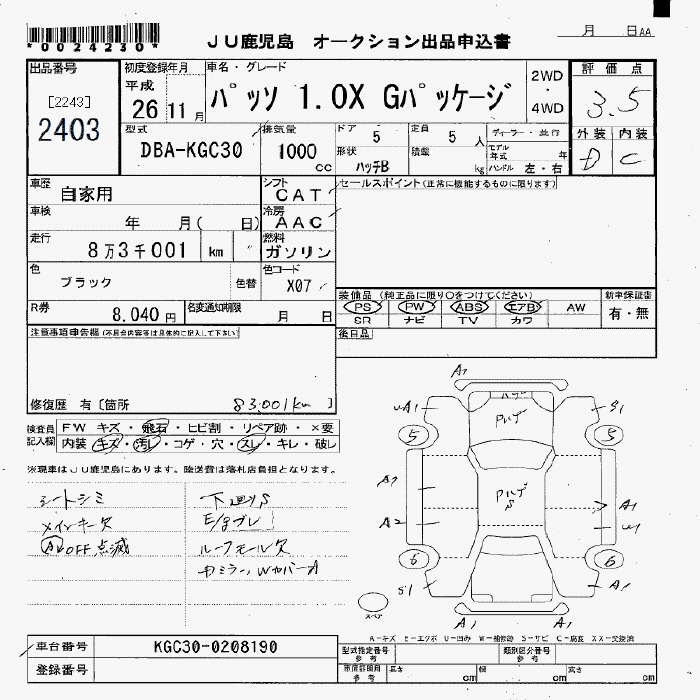 *0024230*
JU鹿児島 オークション出品申込書
月 日AA
出品番号
[2243]
2403
初度登録年月
平成
26 11 月
車名・グレード
パッソ 1.0X Gパッケージ
2WD
・
4WD
評価点
3.5
外装 内装
D C
型式
DBA-KGC30
排気量
1000
cc
ドア
5
定員
5 人
形状
ハッチB
積載
kg
ディーラー・並行
モデル年式 年
ハンドル 左・右
車歴
自家用
シフト
CAT
セールスポイント(正常に機能するものに限ります)
車検
年 月( 日)
冷房
AAC
走行
8万3千001 km
燃料
ガソリン
色
ブラック
色替
色コード
X07
装備品(純正品に限り○をつけてください)
PS PW ABS エアB AW
SR ナビ TV カワ
新車保証書
有・無
R券
8.040 円
名変通知期限
月 日
後日品
注意事項申告欄(不具合内容等は具体的に記入して下さい)
修復歴 有〔箇所 83,001km 〕
検査員記入欄
FW キズ・飛石・ヒビ割・リペア跡・×要
内装・キズ・汚レ・コゲ・穴・スレ・キレ・破レ
※現車はJU鹿児島にあります。陸送費は落札店負担となります。
シートシミ
メインキー欠
OFF点滅
下廻りS
E/gブレ
ルーフモール欠
A1
A1
S1
5
5
Pハゲ
Pハゲ
S
A1
A2
A1
W1
6
6
S1
A1
A1
A1
スペア
A-キズ E-エクボ U-凹み W-補修跡 S-サビ C-腐食 XX-交換済
車台番号
KGC30-0208190
登録番号
型式指定番号
参考
類別区分番号
参考
参考
長さ cm
幅 cm
高さ cm